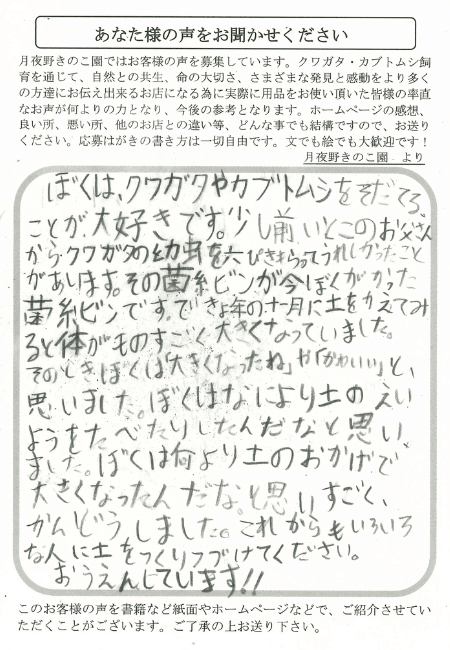 あなた様の声をお聞かせください
月夜野きのこ園ではお客様の声を募集しています。クワガタ・カブトムシ飼
育を通じて、自然との共生、命の大切さ、さまざまな発見と感動をより多く
の方達にお伝え出来るお店になる為に実際に用品をお使い頂いた皆様の率直
なお声が何よりの力となり、今後の参考となります。ホームページの感想、
良い所、悪い所、他のお店との違い等、どんな事でも結構ですので、お送り
ください。応募はがきの書き方は一切自由です。文でも絵でも大歓迎です!
月夜野きのこ園 より
ぼくは、クワガタやカブトムシをそだてる
ことが、大好きです。少し前いとこのお父さん
からクワガタの幼虫を六ぴきもらってうれしかったこと
があります。その菌糸ビンが今ぼくがかった
菌糸ビンです。で、きょ年の十一月に土をかえてみ
ると体がものすごく大きくなっていました。
そのときぼくは「大きくなったね」や「かわいい」と、
思いました。ぼくはなにより土のえい
ようをたべたりしたんだなと思い
ました。ぼくは何より土のおかげで
大きくなったんだな。と思いすごく、
かんどうしました。これからもいろいろ
な人に土をつくりつづけてください。
おうえんしています!!
このお客様の声を書籍など紙面やホームページなどで、ご紹介させてい
ただくことがございます。ご了承の上お送り下さい。